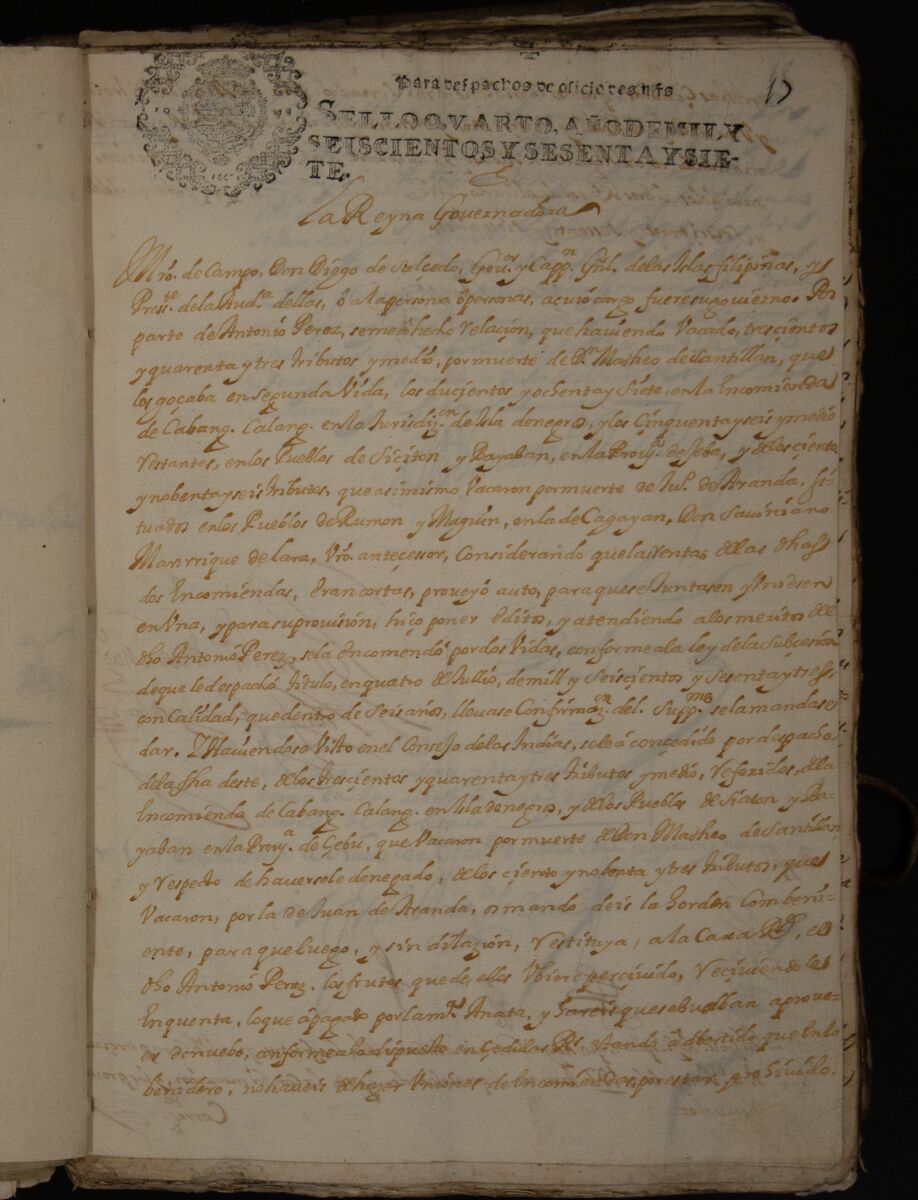 17
Para despachos de oficio
SELLO QVARTO, AÑO DE MIL Y
SEISCIENTOS Y SESENTA Y SIE-
TE.
La Reyna Governadora
Mro. de Campo, Don Diego de Salcedo, Govor. y Cappn. Gnl. de las Islas filipinas, y
Presste. de la Auda. dellas, ô a la persona ô personas, a cuio cargo fuere su govierno. Por
parte de Antonio Perez, seme â hecho Relaçion, que haviendo Vacado, trescientos
y quarenta y tres tributos y medio, por muerte de Dn. Matheo de Santillan, que
los goçaba en segunda Vida, los ducientos y ochenta y Siete, en la Encomienda
de Cabang. Calang. en la Jurisdizn. de Isla de negros, y los Çinquenta y seis y medio
Restantes, en los Pueblos de Siçiton y Bayaban, en la Prova. de Seba, y de los çiento
y nobenta y seis tributos, que asimismo Vacaron por muerte de Jul. de Aranda, si-
tuados en los Pueblos de Rumon y Maguin, en la de Cagayan, Don Saviniano
Manrrique de Lara, Vro. antecessor, Considerando que las Rentas de las dhas
dos Encomiendas, eran cortas, proveyó auto, para que se Juntasen y Vniesen
en Vna, y para su provisión, hiço poner edito, y atendiendo a los meritos del
dho Antonio Perez, se la encomendó por dos Vidas, conforme a la ley de la Subcesion
de que le despachó titulo, en quatro de Jullio, de mill y Seiscientos y sesenta y tres,
con Calidad, que dentro de Seis años, llevase Confirmazn. del. Suppdo. se la mandase
dar. Y Haviendose Visto en el Consejo de las Indias, se le â concedido por despacho
de la fha deste, de los trescientos y quarenta y tres tributos y medio, referidos, de la
Encomienda de Cabang. Calang. en Isla de negros, y de los Pueblos de Siaton y Ba-
yaban en la Prova. de Çebu, que Vacaron por muerte de Don Matheo de Santillan
y Respecto de haversele denegado, de los çiento y nobenta y tres tributos, que
Vacaron, por la de Juan de Aranda, os mando deis la horden Combeni-
ente, para que luego, y sin dilazión, Restituya, a la Caxa Rl, el
dho Antonio Perez, los frutos que de ellos Vbiere percivido, Reciviendole
En quenta, lo que â pagado por la mda. Anata, y hareis que se buelban a prove-
er de nuebo, conforme a lo dispuesto en Çedulas Rs. estando âdbertido que en lo
benidero, no haveis de hazer Vniones de Encomiendas, por estar prohivido.